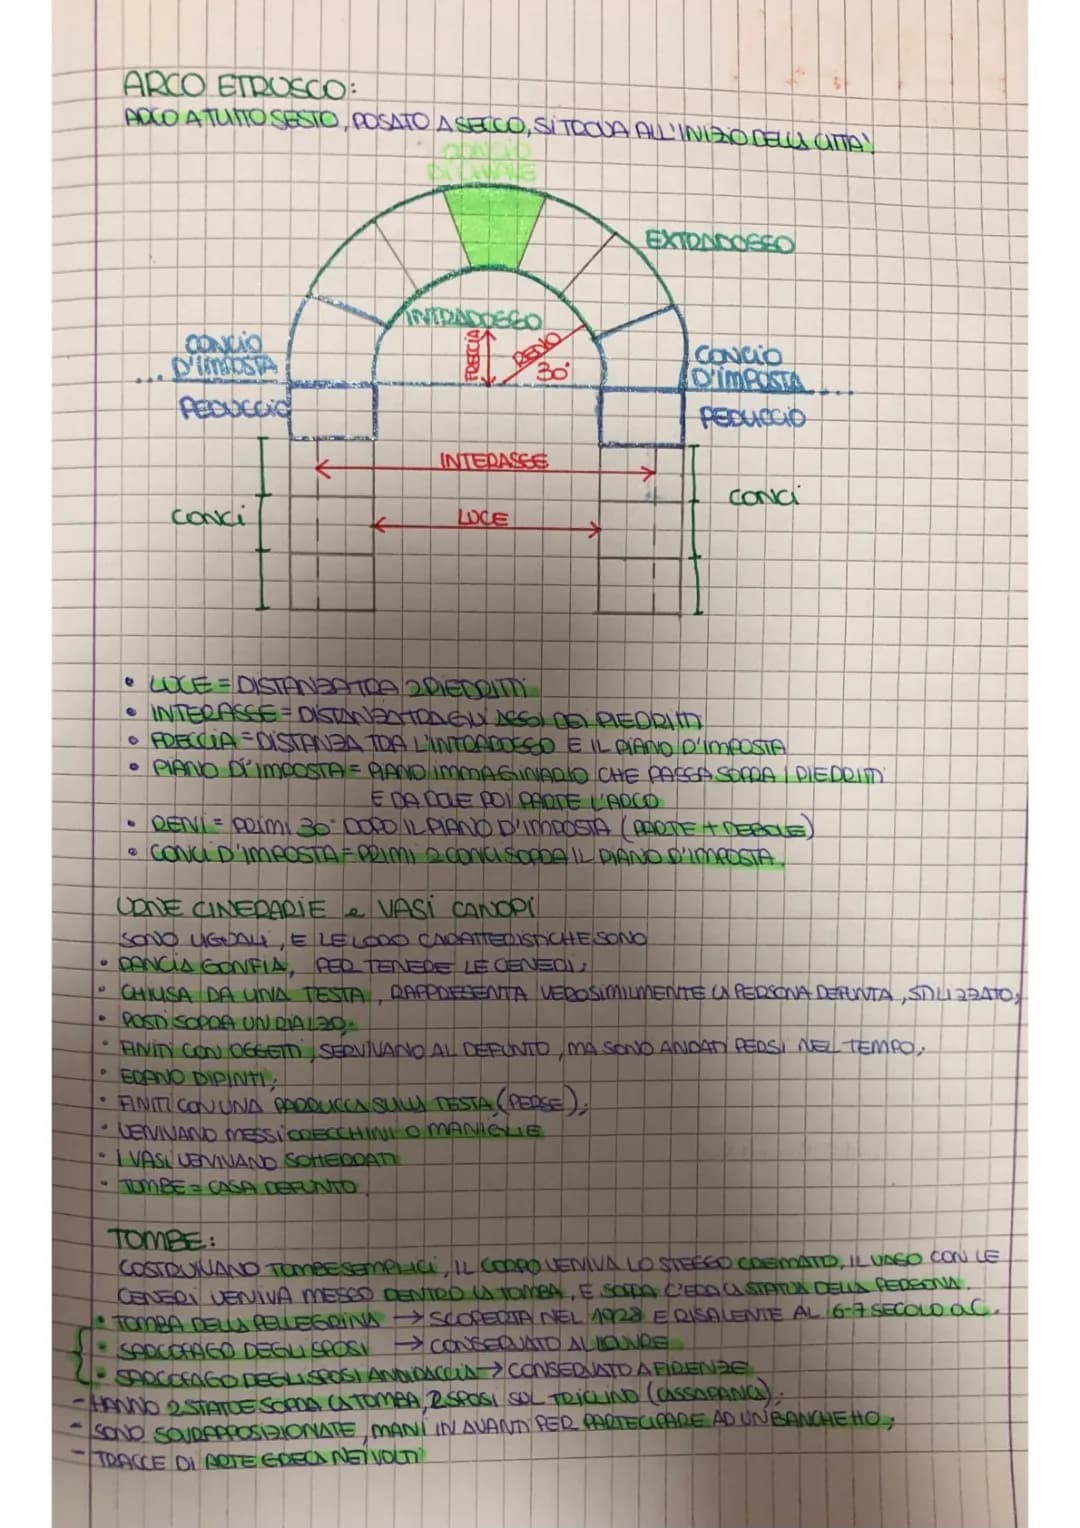 ARCO ETRUSCO:
ARCO A TUTTO SESTO, POSATO A SECCO, SI TROVA ALL'INIZIO DELLA CITTA'
CONCIO
DI CHIAVE
EXTRADOSSO
INTRADOSSO
CONCIO
D'IMPOSTA
FRECCIA
RENO
30°
CONCIO
D'IMPOSTA
PEDUCCIO
PEDUCCIO
INTERASSE
CONCI
CONCI
LUCE
• LUCE = DISTANZA TRA 2 PIEDRITTI
• INTERASSE = DISTANZA TRA GLI ASSI DEI PIEDRITTI
• FRECCIA = DISTANZA TRA L'INTRADOSSO E IL PIANO D'IMPOSTA
• PIANO DI IMPOSTA = PIANO IMMAGINARIO CHE PASSA SOPRA I PIEDRITTI
E DA DOVE POI PARTE L'ARCO
• RENI = PRIMI 30° DOPO IL PIANO D'IMPOSTA (PARTE + DEBOLE)
• CONCI D'IMPOSTA = PRIMI 2 CONCI SOPRA IL PIANO D'IMPOSTA.
URNE CINERARIE e VASI CANOPI
SONO UGUALI, E LE LORO CARATTERISTICHE SONO
• PANCIA GONFIA, PER TENERE LE CENERI;
• CHIUSA DA UNA TESTA, RAPPRESENTA VEROSIMILMENTE LA PERSONA DEFUNTA, STILIZZATO;
• POSTI SOPRA UN RIALZO;
• FINITI CON OGGETTI, SERVIVANO AL DEFUNTO, MA SONO ANDATI PERSI NEL TEMPO;
• ERANO DIPINTI;
• FINITI CON UNA PARRUCCA SULLA TESTA (PERSE);
• VENIVANO MESSI ORECCHINI O MANIGLIE
• I VASI VENIVANO SOTTERRATI
• TOMBE = CASA DEFUNTO
TOMBE:
COSTRUIVANO TOMBE SEMPLICI, IL CORPO VENIVA LO STESSO CREMATO, IL VASO CON LE
CENERI VENIVA MESSO DENTRO LA TOMBA, E SOPRA C'ERA LA STATUA DELLA PERSONA.
• TOMBA DELLA PELLEGRINA → SCOPERTA NEL 1928 E RISALENTE AL 6-7 SECOLO a.C.
• SARCOFAGO DEGLI SPOSI → CONSERVATO AL LOUVRE
• SARCOFAGO DEGLI SPOSI → CONSERVATO A FIRENZE
- HANNO 2 STATUE SOPRA LA TOMBA, 2 SPOSI SUL TRICLINO (CASSAPANCA);
- SONO SOVRAPPOSIZIONATE, MANI IN AVANTI PER PARTECIPARE AD UN BANCHETTO;
- TRACCE DI ARTE GRECA NEI VOLTI